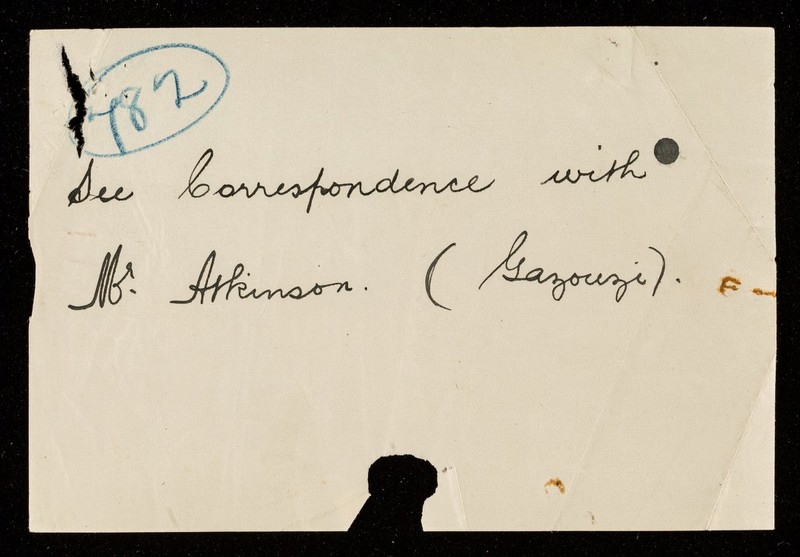 782
See Correspondence with
Mr. Atkinson. (Gazouzi).